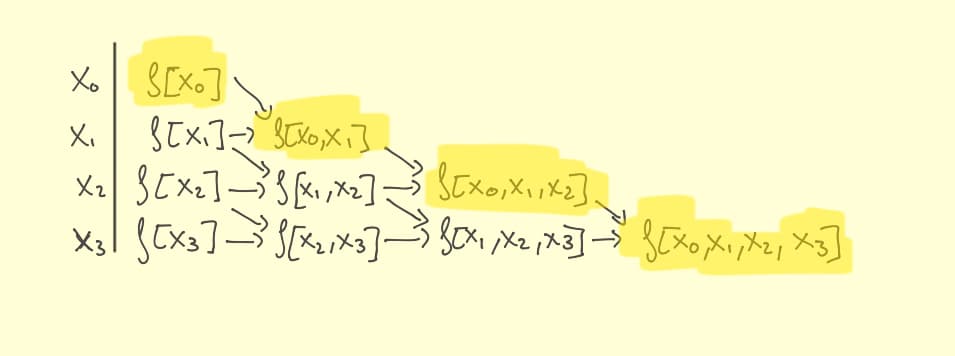 x₀ | f[x₀]
x₁ | f[x₁] → f[x₀,x₁]
x₂ | f[x₂] → f[x₁,x₂] → f[x₀,x₁,x₂]
x₃ | f[x₃] → f[x₂,x₃] → f[x₁,x₂,x₃] → f[x₀,x₁,x₂,x₃]